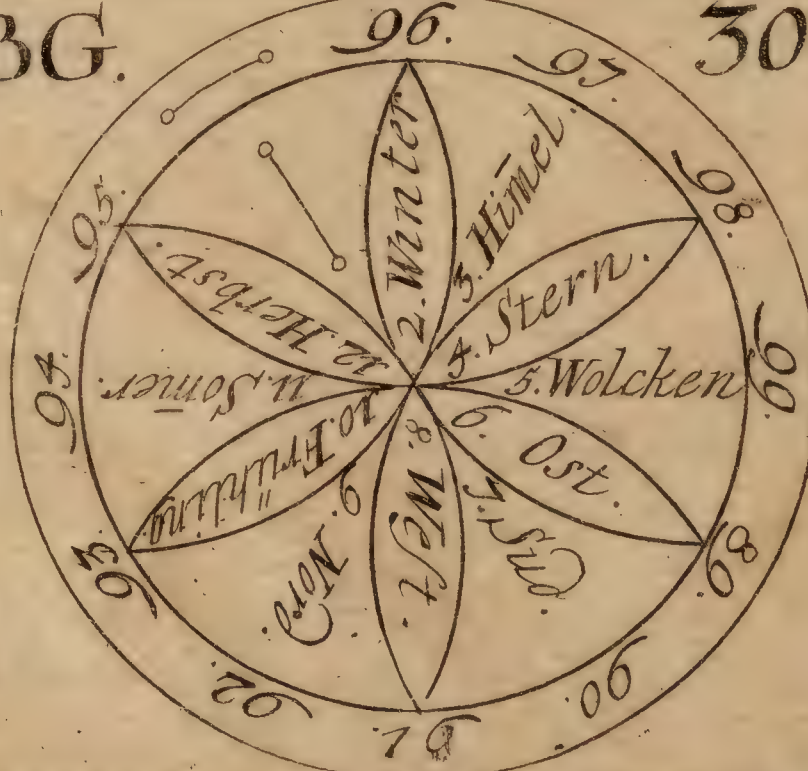 BG.
30
96.
97.
98.
99.
89.
90.
91.
92.
93.
94.
95.
2. Winter
3. Him̄el.
4. Stern.
5. Wolcken
6. Ost.
7. Sud.
8. Weſt.
9. Nord.
10. Frühling
11. Som̄er.
12. Herbst.